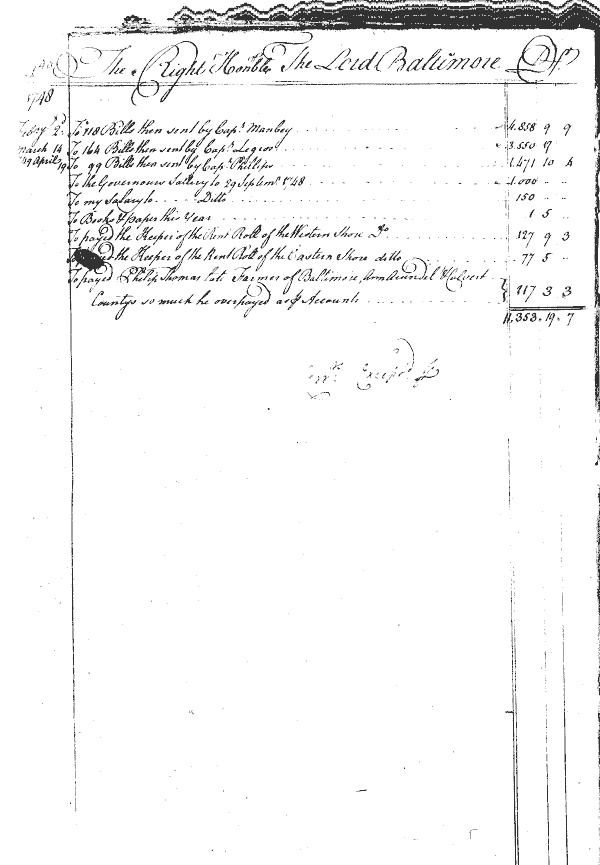 The Right Honble The Lord Baltimore Dr
1748
Febry 2d To 118 Bills then sent by Capt Manbey 4.858 9 9
March 14 To 164 Bills then sent by Capt Legror 3.550 17
49 April 19 To 99 Bills then sent by Capt Phillips 1.471 10 4
To the Governours Sallery to 29 Septemr 1748 1.000 .. ..
To my Salary to Ditto 150 .. ..
To Books & paper this Year 1 5 ..
To payed the Keeper of the Rent Roll of the Western Shore Do 127 9 3
the Keeper of the Rent Roll of the Eastern Shore ditto 77 5 ..
To payed Philip Thomas late Farmer of Baltimore Ann Arundel & Calvert
Countys so much he overpayed as Accounts 117 3 3
11.353.19.7